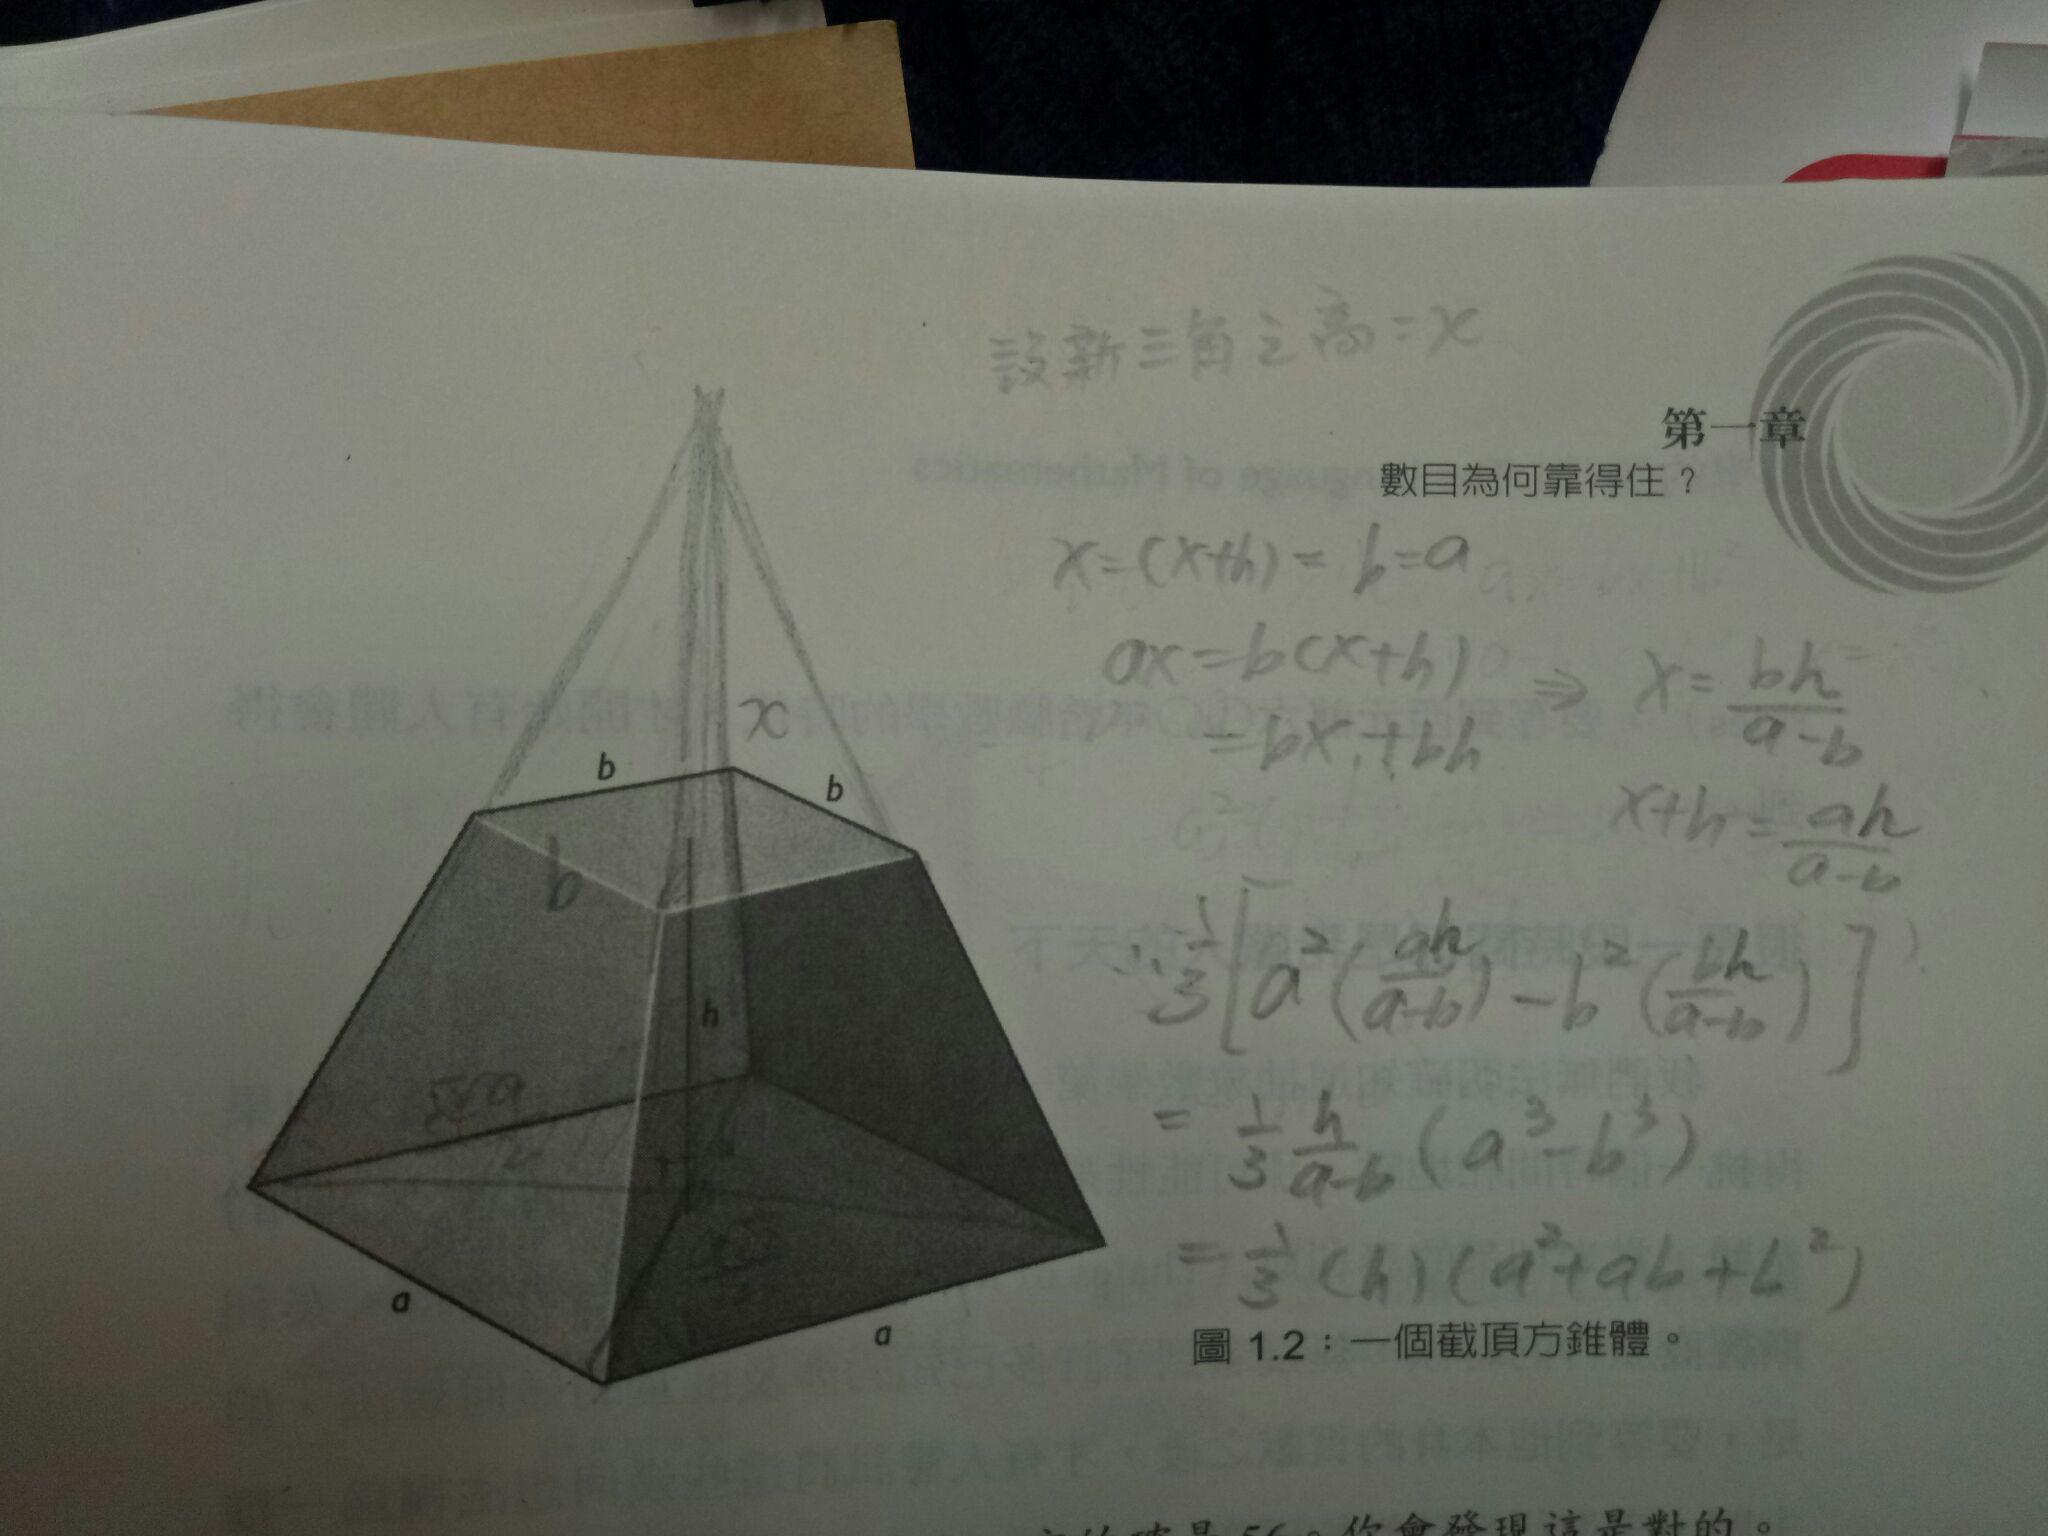 設新三角之高=x
第一章
數目為何靠得住？
x=(x+h)=b=a
ax=b(x+h)
=bx+bh
⇒ x=bh/a-b
x+h=ah/a-b
x
b
b
b
h
a
a
∴ 1/3[a²(ah/a-b)-b²(bh/a-b)]
= 1/3 h/a-b (a³-b³)
= 1/3 (h)(a²+ab+b²)
圖 1.2：一個截頂方錐體。
是 56。你會發現這是對的。